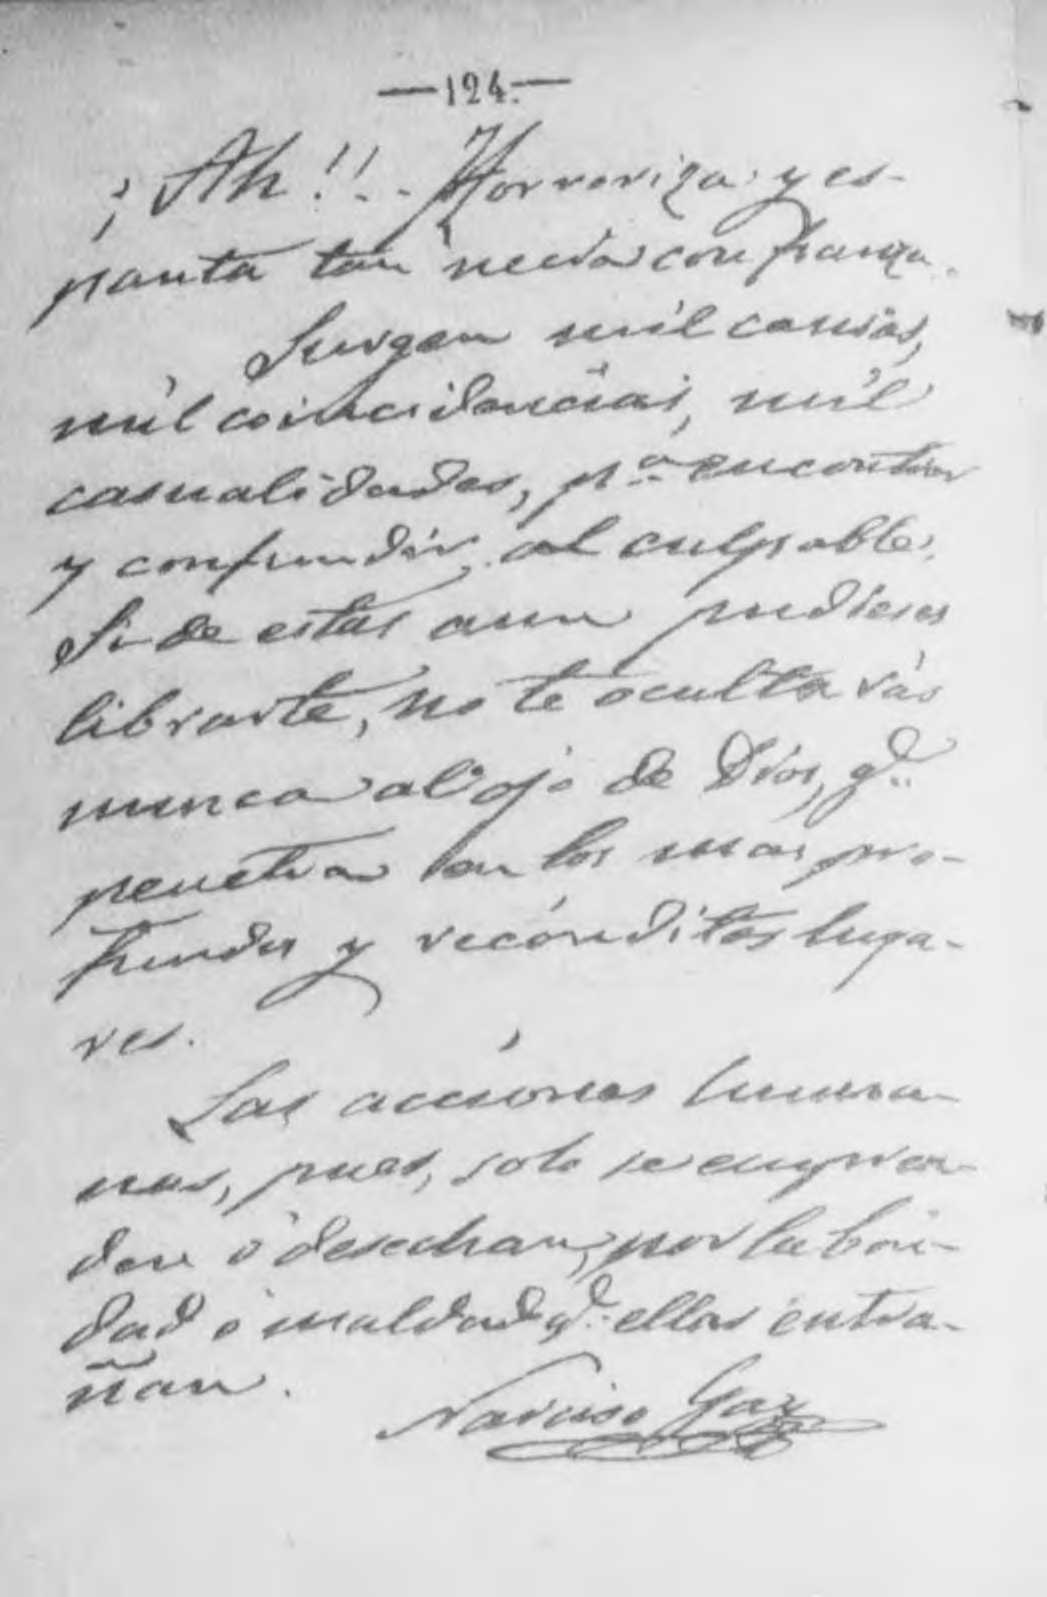 —124.—
¡Ah!!.. Horroriza y es-
panta tan necia confianza.
Surgen mil causas,
mil coincidencias, mil
casualidades, pª encontrar
y confundir al culpable.
Si de estas aun pudieses
librarte, no te ocultarás
nunca al ojo de Dios, qe
penetra en los mas pro-
fundos y recónditos luga-
res.
Las acciones huma-
nas, pues, solo se empren-
den ó desechan, por la bon-
dad ó maldad qe ellas entra-
ñan.
Narciso Gay